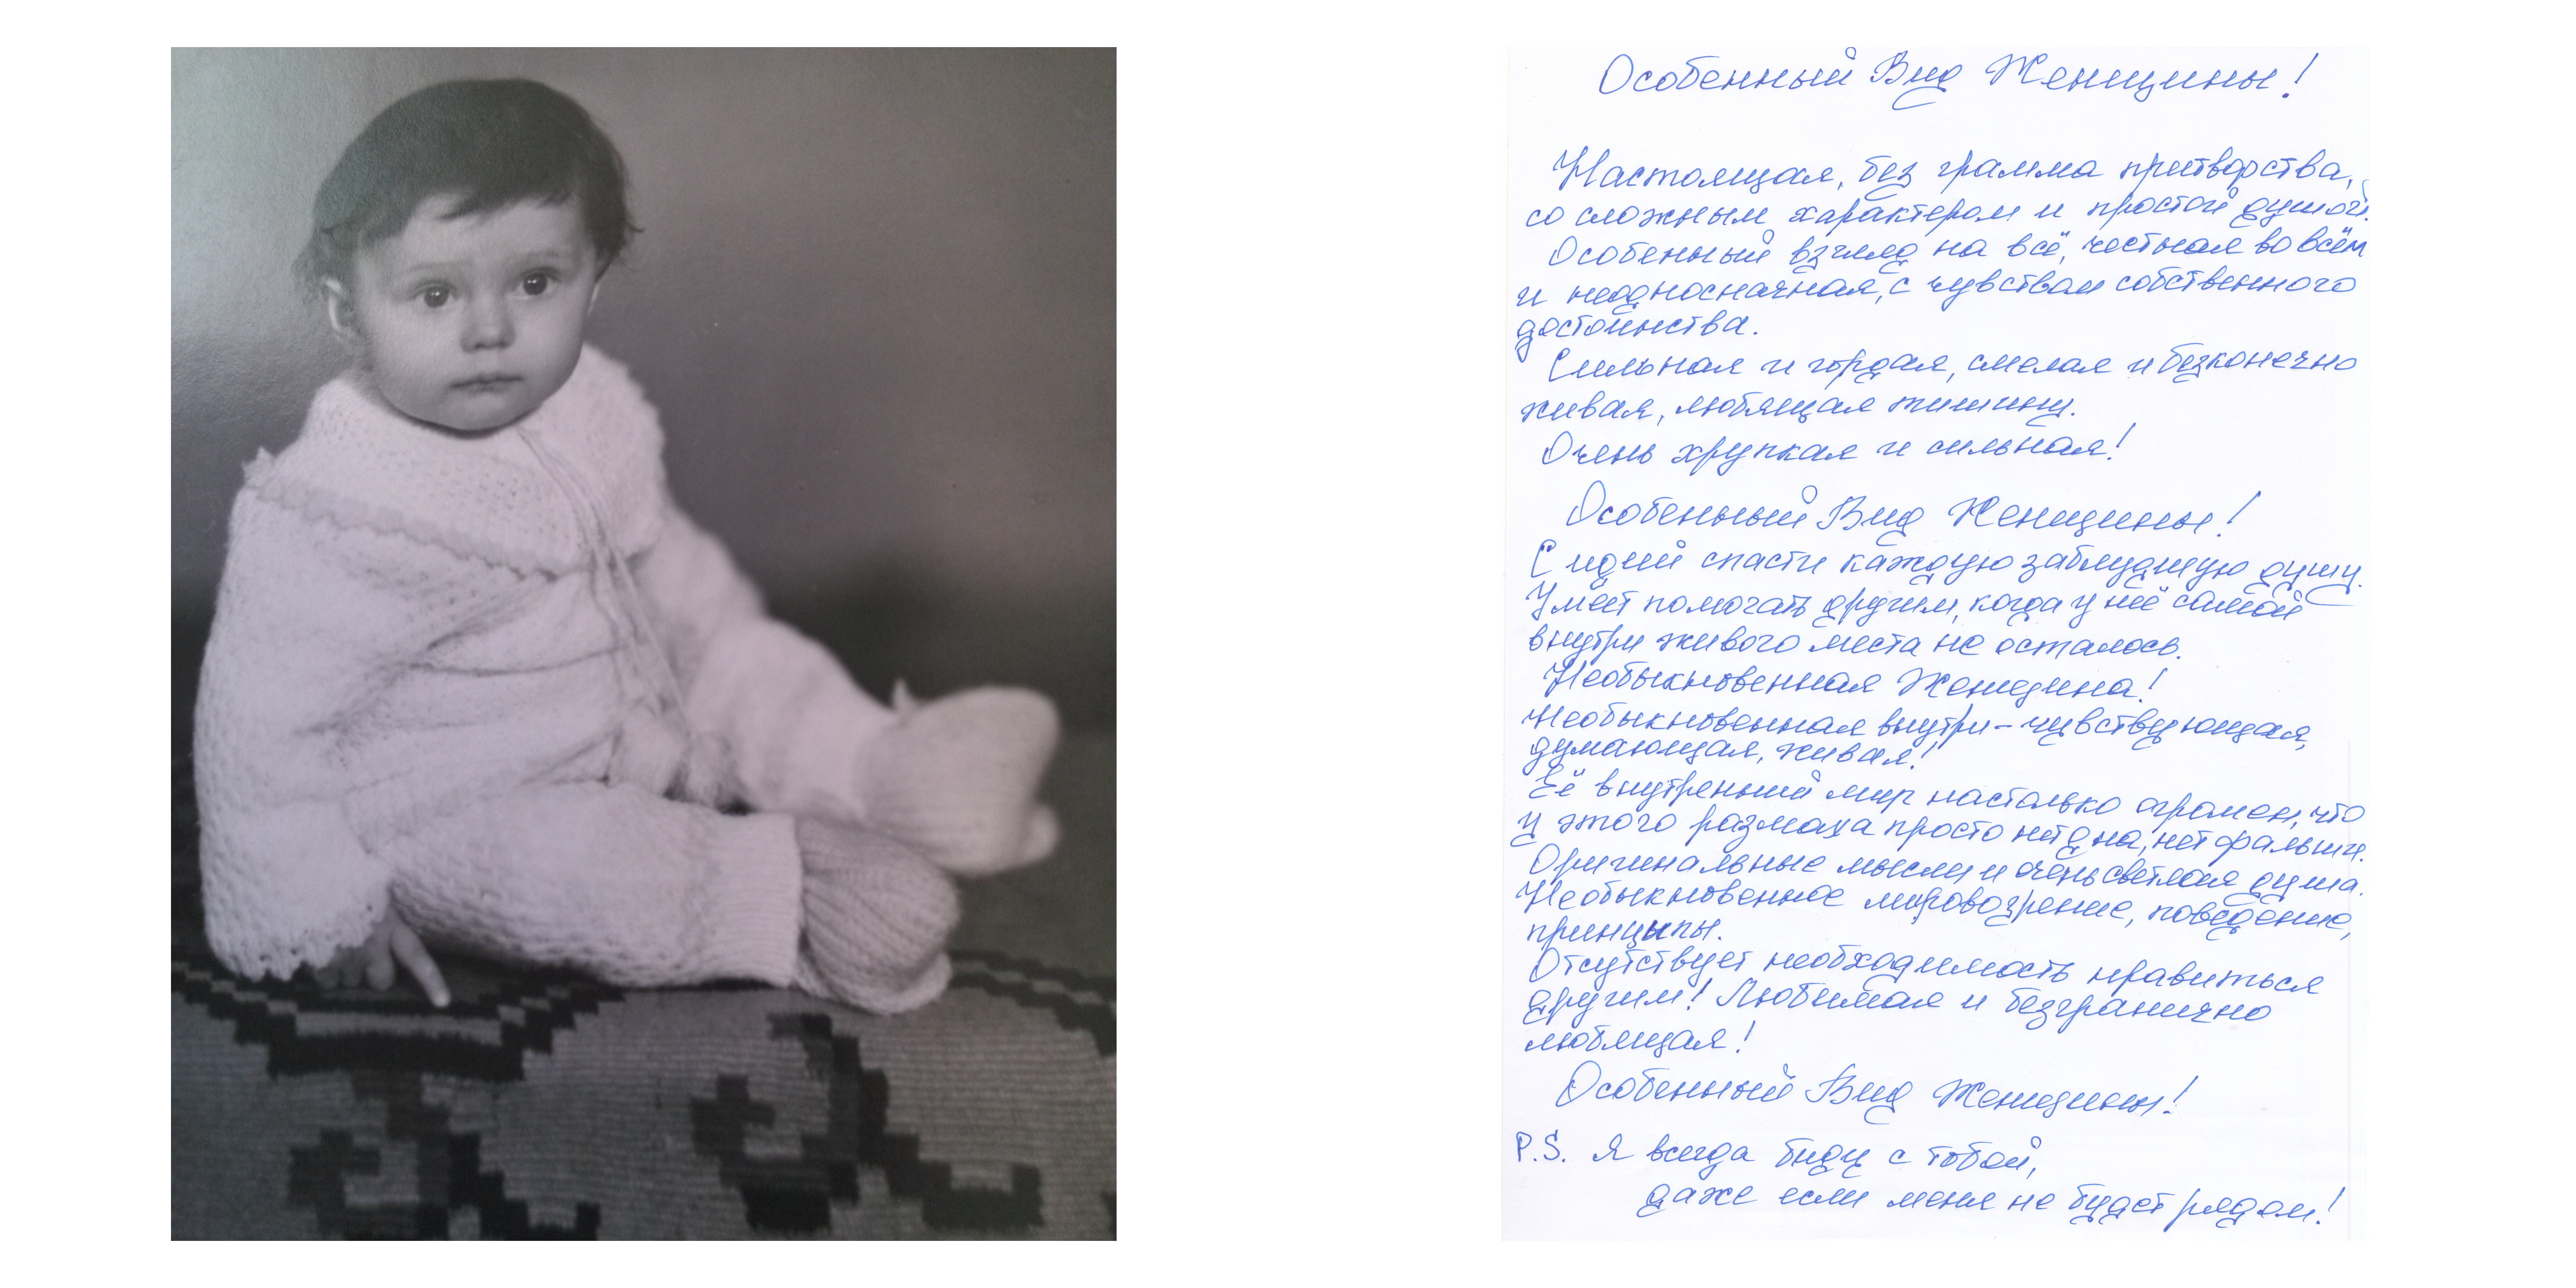 Особенный Вид Женщины!
Настоящая, без грамма притворства,
со сложным характером и простой душой.
Особенный взгляд на всё, честная во всём
и неодносначная, с чувством собственного
достоинства.
Сильная и гордая, смелая и безконечно
живая, любящая тишину.
Очень хрупкая и сильная!
Особенный Вид Женщины!
С идеий спасти каждую заблудшую душу.
Умеет помогать другим, когда у неё самой
внутри живого места не осталось.
Необыкновенная Женщина!
Необыкновенная внутри-чувствующая,
думающая, живая!
Её внутренний мир настолько огромен, что
у этого размаха просто нет дна, нет фальши.
Оригинальные мысли и очень светлая душа.
Необыкновенное мировозрение, поведение,
принцыпы.
Отсутствует необходимость нравиться
другим! Любимая и безгранично
любящая!
Особенный Вид Женщины!
P.S. Я всегда буду с тобой,
даже если меня не будет рядом!